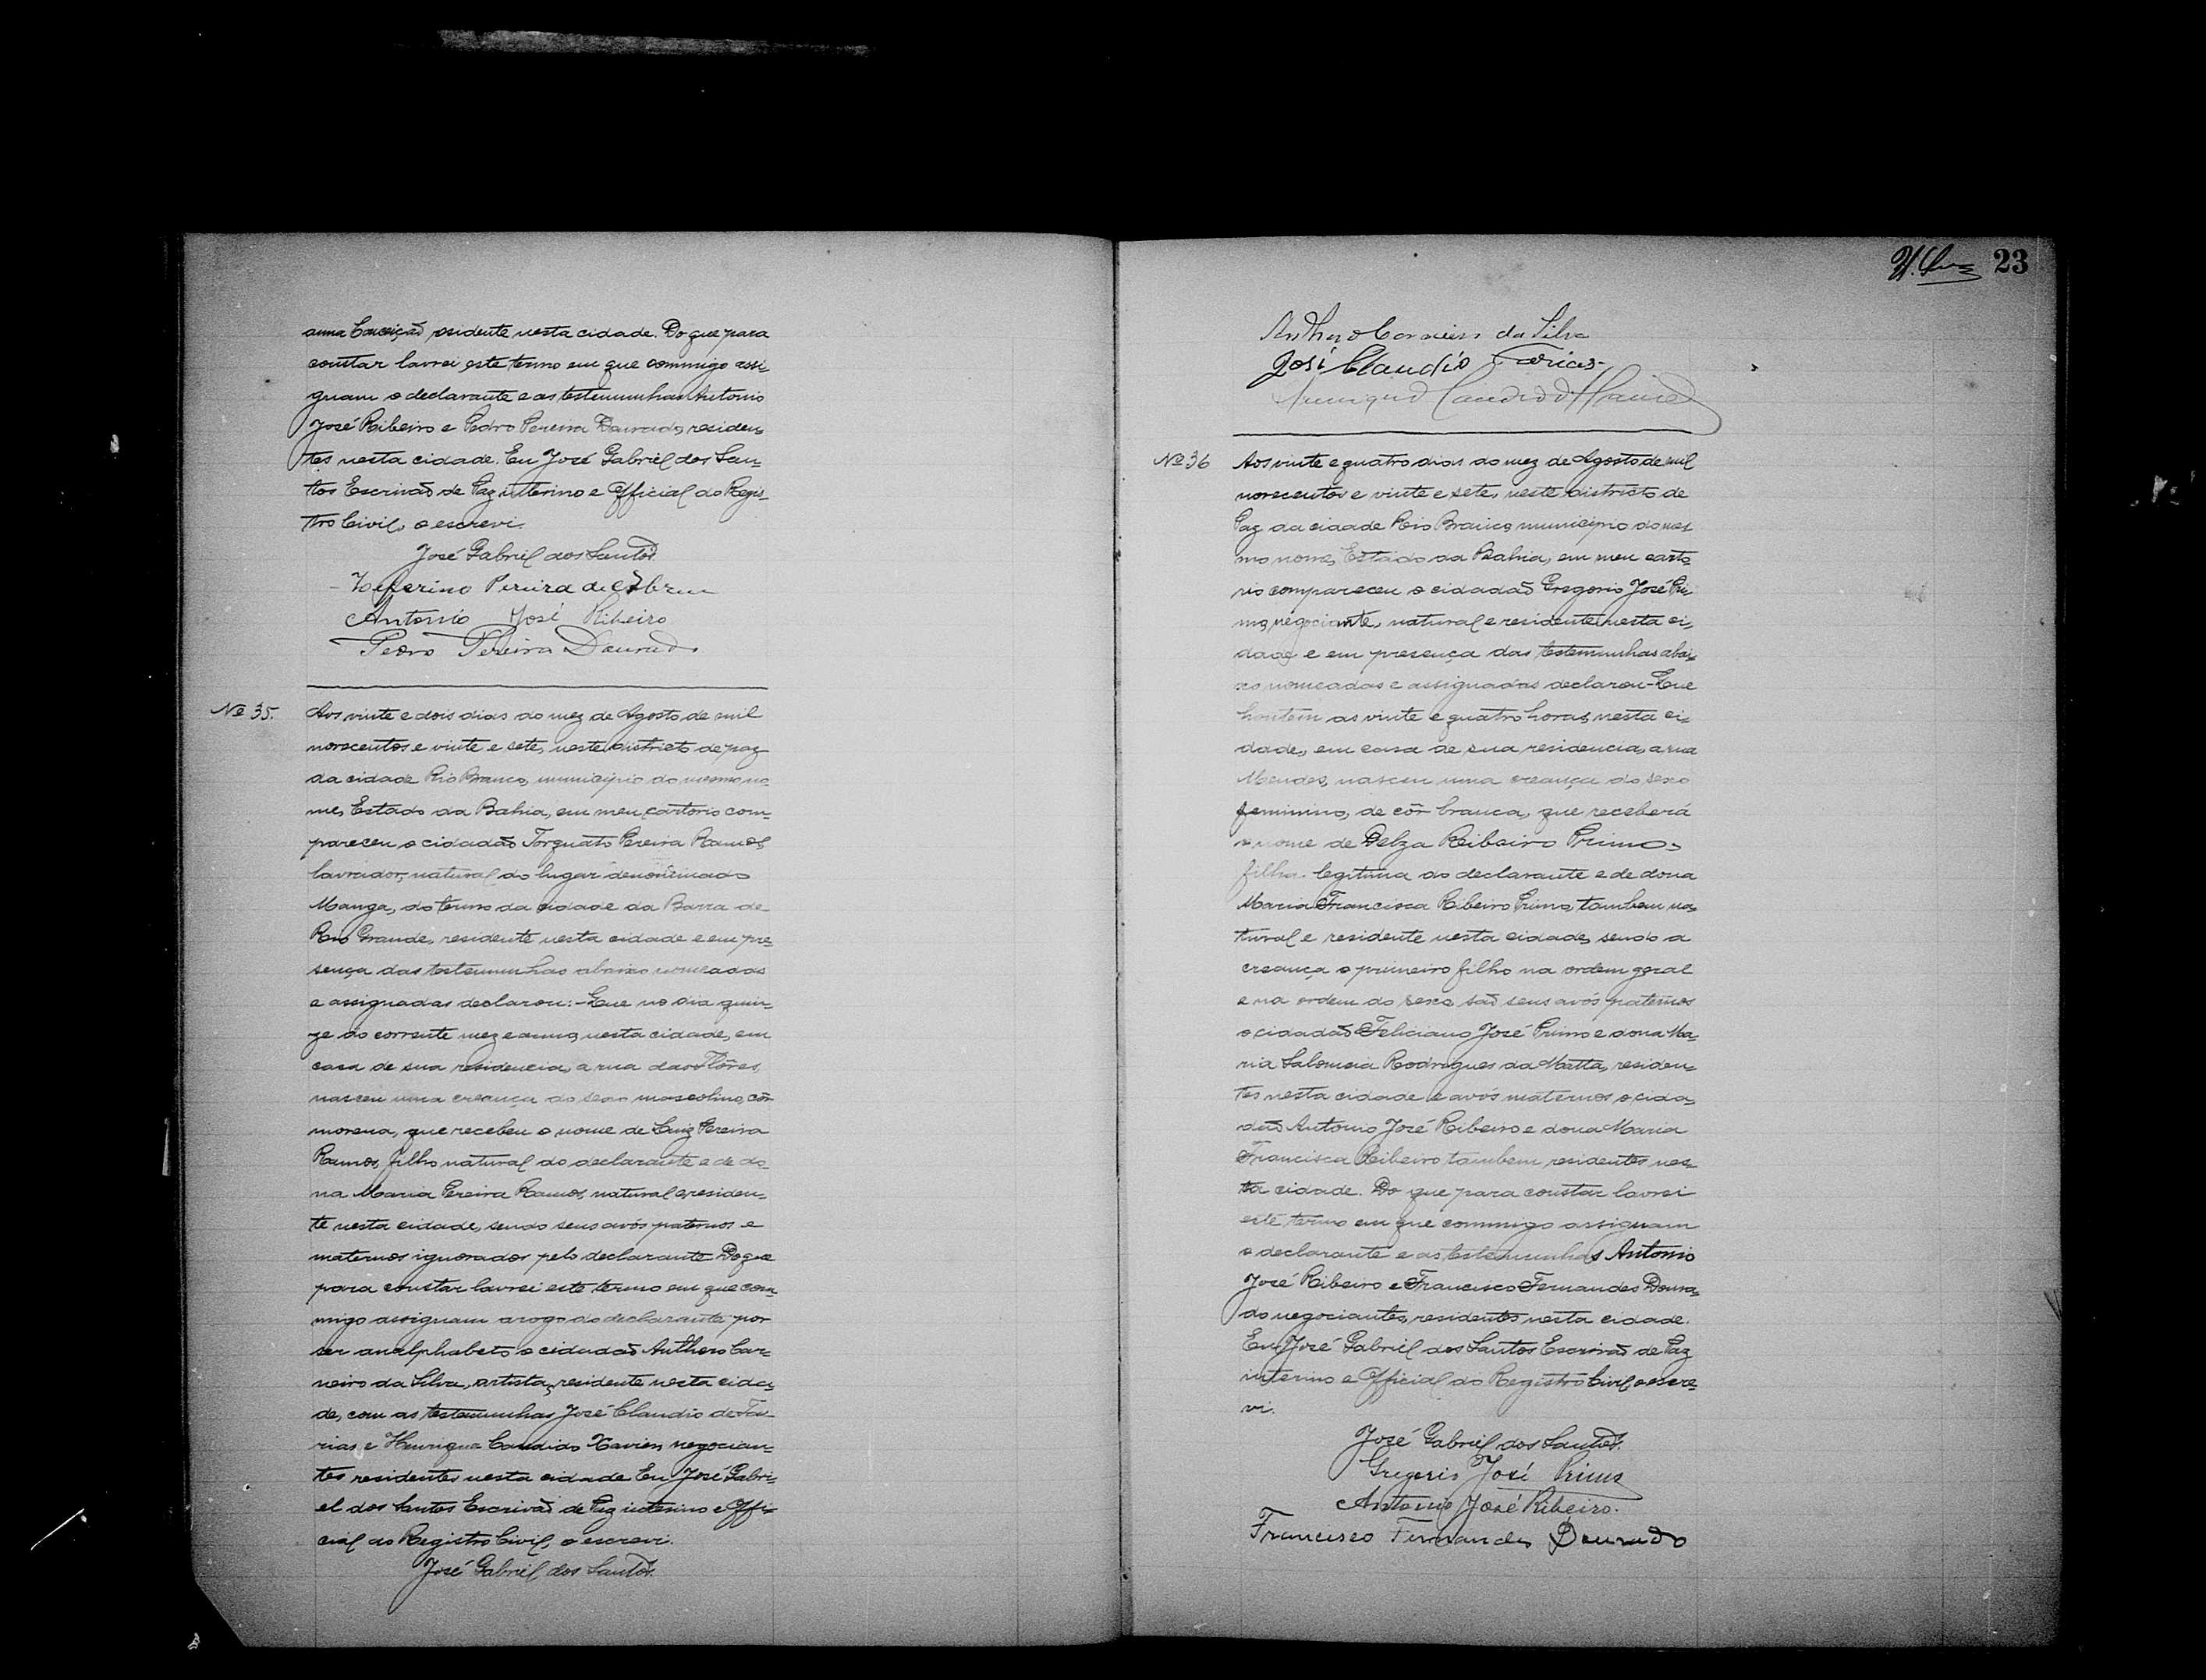 anna Conceição residente nesta cidade. Do que para
constar lavrei este termo em que commigo assi-
gnam o declarante e as testemunhas Antonio
José Ribeiro e Pedro Pereira Dourado, residen-
tes nesta cidade. Eu José Gabriel dos San-
tos Escrivão de Paz interino e Official do Regis-
tro Civil, o escrevi.
José Gabriel dos Santos.
Zeferino Pereira de Abreu
Antonio José Ribeiro
Pedro Pereira Dourado
Nº 35.
Aos vinte e dois dias do mez de Agosto de mil
novecentos e vinte e sete, neste districto de paz
da cidade Rio Branco, municipio do mesmo no-
me, Estado da Bahia, em meu cartorio com-
pareceu o cidadão Torquato Pereira Ramos,
lavrador, natural do lugar denominado
Manga, do termo da cidade da Barra do
Rio Grande, residente nesta cidade e em pre-
sença das testemunhas abaixo nomeadas
e assignadas declarou:- Que no dia quin-
ze do corrente mez e anno, nesta cidade, em
casa de sua residencia, a rua das Flôres,
nasceu uma creança do sexo mascolino, côr
morena, que recebeu o nome de Luiz Pereira
Ramos, filho natural do declarante e de do-
na Maria Pereira Ramos, natural e residen-
te nesta cidade, sendo seus avós paternos e
maternos ignorados pelo declarante. Do que
para constar lavrei este termo em que com-
migo assignam arogo do declarante por
ser analphabeto o cidadão Anthero Car-
neiro da Silva, artista, residente nesta cida-
de, com as testemunhas José Claudio de Fa-
rias e Henrique Candido Xavier, negocian-
tes residentes nesta cidade. Eu José Gabri-
el dos Santos Escrivão de Paz interino e Offi-
cial do Registro Civil, o escrevi.
José Gabriel dos Santos.
23
Anthero Carneiro da Silva
José Claudio Farias
Henrique Candido Xavier
Nº 36
Aos vinte e quatro dias do mez de Agosto de mil
novecentos e vinte e sete, neste districto de
Paz da cidade Rio Branco, municipio do mes-
mo nome, Estado da Bahia, em meu carto-
rio compareceu o cidadão Gregorio José Pri-
mo, negociante, natural e residente nesta ci-
dade e em presença das testemunhas abai-
xo nomeadas e assignadas declarou- Que
hontem as vinte e quatro horas, nesta ci-
dade, em casa de sua residencia, a rua
Mendes, nasceu uma creança do sexo
feminino, de côr branca, que receberá
o nome de Delza Ribeiro Primo,
filha legitima do declarante e de dona
Maria Francisca Ribeiro Primo, tambem na-
tural e residente nesta cidade, sendo a
creança o primeiro filho na ordem geral
e na ordem do sexo, são seus avós paternos
o cidadão Feliciano José Primo e dona Ma-
ria Salomeia Rodrigues da Matta, residen-
tes nesta cidade e avós maternos o cida-
dão Antonio José Ribeiro e dona Maria
Francisca Ribeiro tambem residentes nes-
ta cidade. Do que para constar lavrei
este termo em que commigo assignam
o declarante e as testemunhas Antonio
José Ribeiro e Francisco Fernandes Doura-
do negociantes, residentes nesta cidade.
Eu, José Gabriel dos Santos Escrivão de Paz
interino e Official do Registro Civil, o escre-
vi.
José Gabriel dos Santos.
Gregorio José Primo
Antonio José Ribeiro.
Francisco Fernandes Dourado